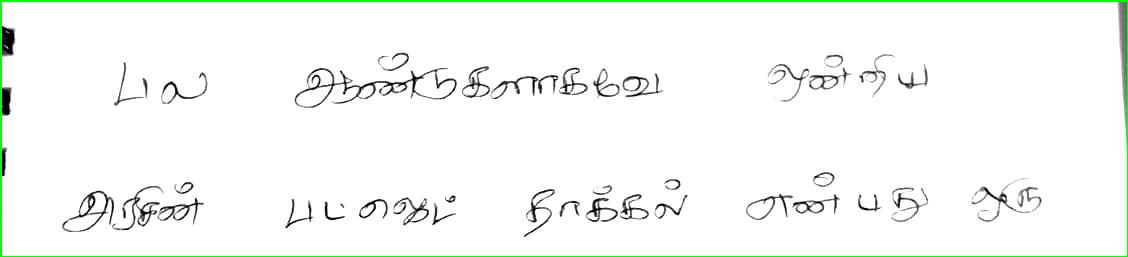 பல ஆண்டுகளாகவே ஒன்றிய
அரசின் பட்ஜெட் தாக்கல் என்பது ஒரு